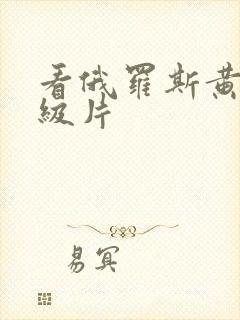 看俄羅斯黄
級片
易冥